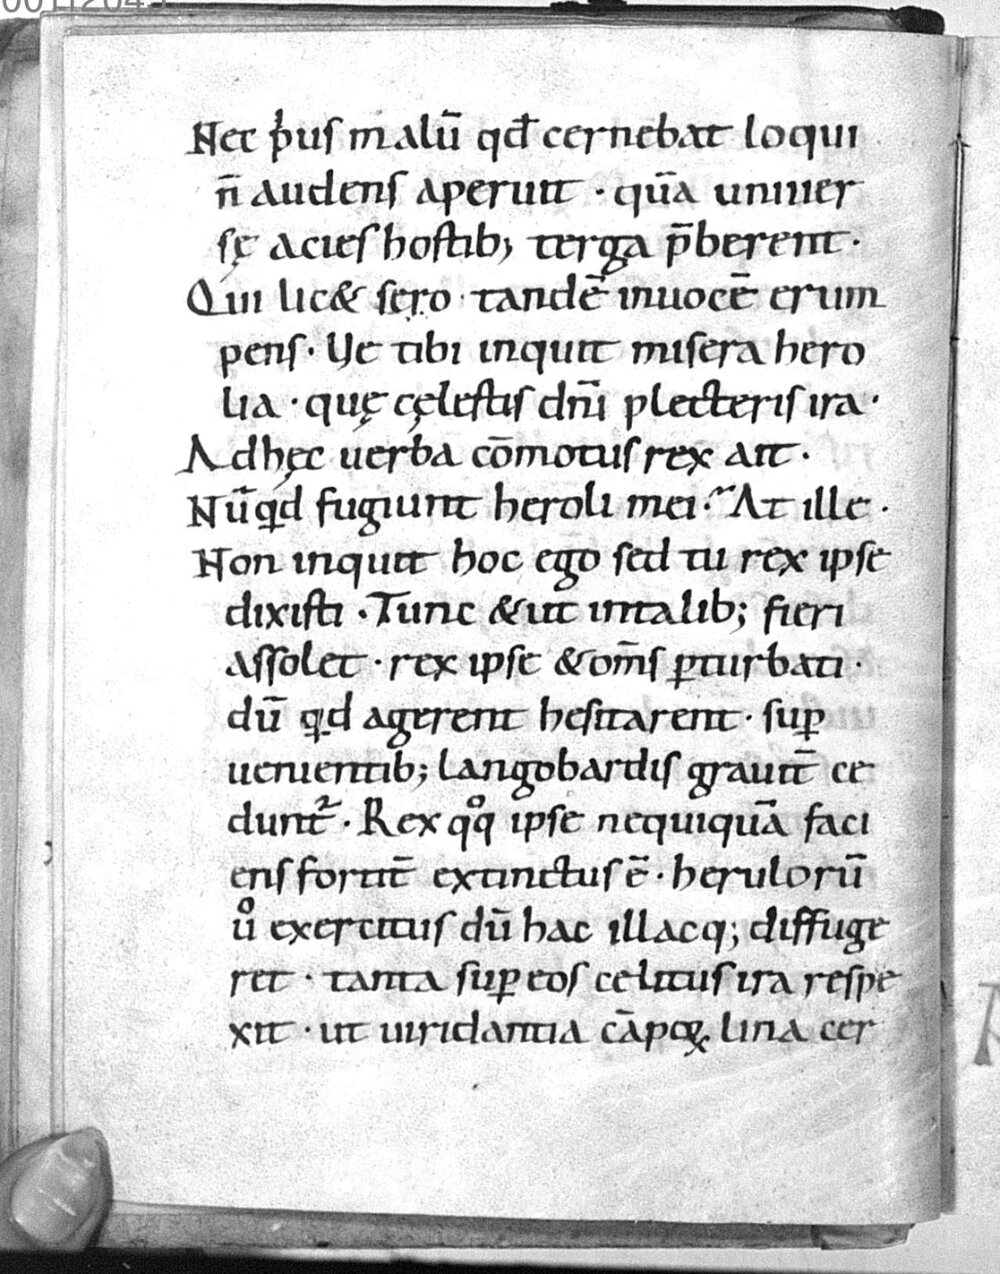 Nec p̍us malū qđ cernebat loqui
n̄ audens aperuit · quā uniuer
sę acies hostib; terga p̄berent·
Qui lic& sero tandē inuocē erum
pens· Ve tibi inquit misera hero
lia · quę cęlestis dn̄i plecteris ira·
Ad hęc uerba cōmotus rex ait·
Nūqđ fugiunt heroli mei· At ille·
Non inquit hoc ego sed tu rex ipse
dixisti · Tunc & ut intalib; fieri
assolet · rex ipse & om̄s ꝑturbati·
dū qd agerent hesitarent · suꝑ
uenientib; langobardis grauit̄ ce
dunt᷑· Rex qͦq ipse nequiquā faci
ens fortit̄ extinctus ē· herulorū
uͦ exercitus dū hac illacq; diffuge
ret · tanta suꝑ eos celitus ira respe
xit · ut uiridantia cāpoꝝ lina cer